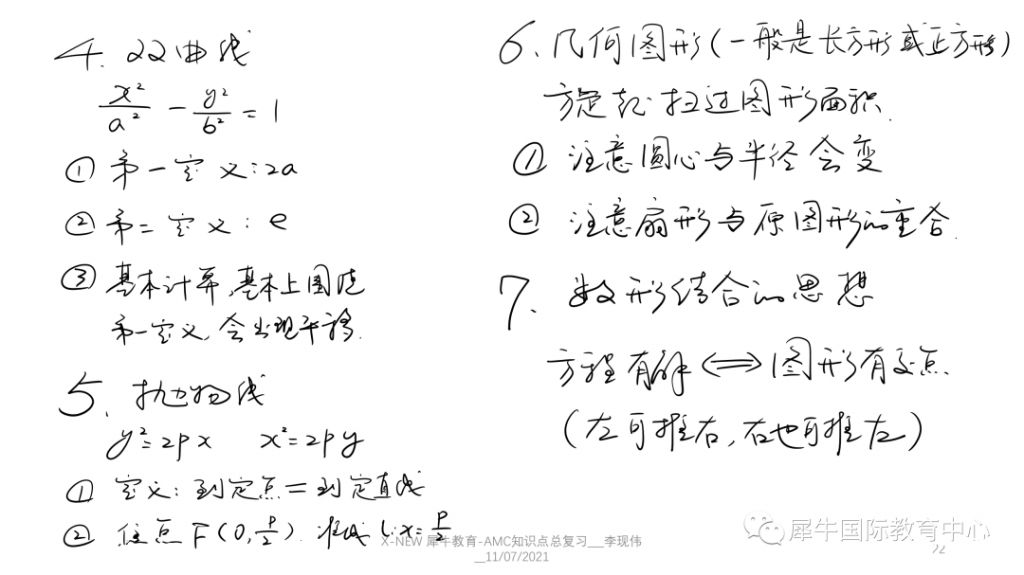 4. 双曲线
x²/a² - y²/b² = 1
① 第一定义:2a
② 第二定义:e
③ 基本计算,基本上围绕
第一定义,会出现平移.
5. 抛物线
y²=2px x²=2py
① 定义:到定点=到定直线
② 焦点 F(0,p/2). 准线 l:x=p/2
6. 几何图形(一般是长方形或正方形)
旋转 扫过图形面积.
① 注意圆心与半径会变
② 注意扇形与原图形的重合.
7. 数形结合的思想
方程有解⟺图形有交点
(左可推右,右也可推左)
X-NEW 犀牛教育-AMC知识点总复习__李现伟
__11/07/2021
犀牛国际教育中心
22